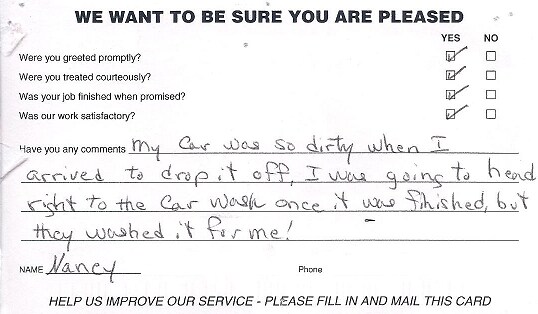 WE WANT TO BE SURE YOU ARE PLEASED
YES NO
Were you greeted promptly?
Were you treated courteously?
Was your job finished when promised?
Was our work satisfactory?
Have you any comments My Car was so dirty when I
arrived to drop it off, I was going to head
right to the Car Wash once it was finished, but
they washed it for me!
NAME Nancy Phone
HELP US IMPROVE OUR SERVICE - PLEASE FILL IN AND MAIL THIS CARD